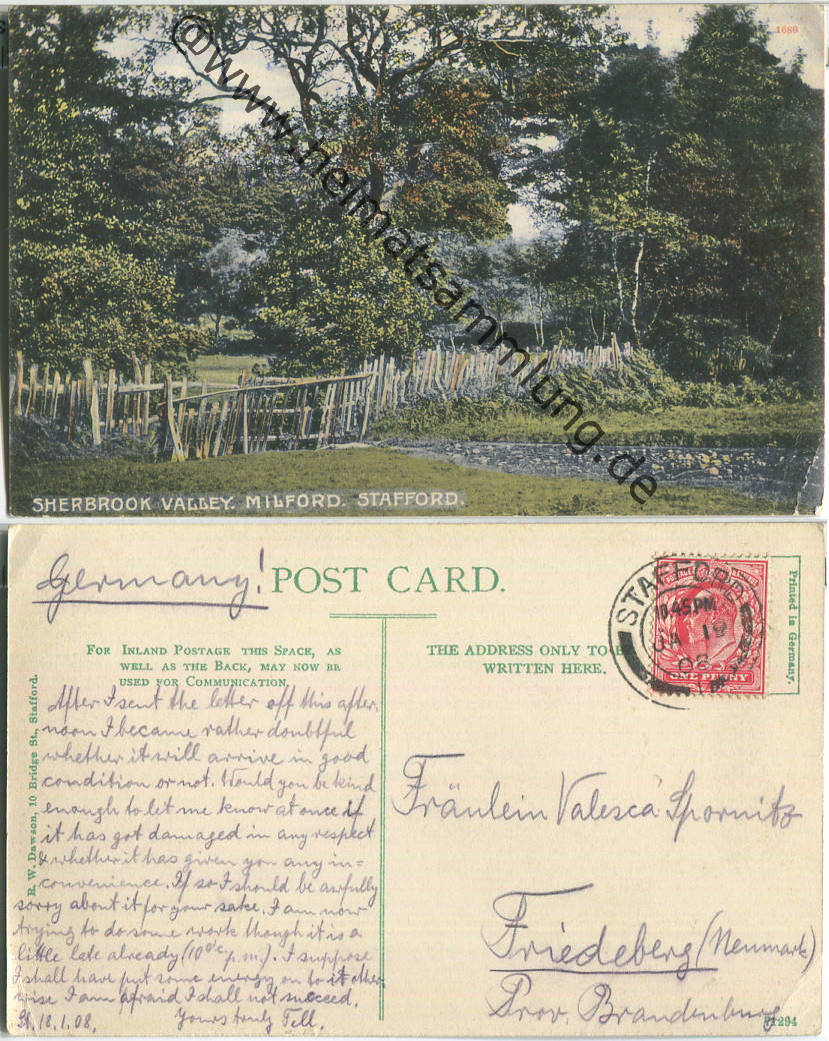 1689
@www.heimatsammlung.de
SHERBROOK VALLEY. MILFORD. STAFFORD.
Germany!
POST CARD.
FOR INLAND POSTAGE THIS SPACE, AS
WELL AS THE BACK, MAY NOW BE
USED FOR COMMUNICATION.
THE ADDRESS ONLY TO BE
WRITTEN HERE.
Printed in Germany.
STAFFORD
10.45 PM
JA 19
08
ONE PENNY
R. W. Dawson, 10 Bridge St., Stafford.
After I sent the letter off this after-
noon I became rather doubtful
whether it will arrive in good
condition or not. Would you be kind
enough to let me know at once if
it has got damaged in any respect
& whether it has given you any in=
convenience. If so I should be awfully
sorry about it for your sake. I am now
trying to do some work though it is a
little late already (10 o'c. p.m.). I suppose
I shall have put some energy on to it other-
wise I am afraid I shall not succeed.
St. 18.1.08. Yours truly Tell.
Fräulein Valesca Spornitz
Friedeberg (Neumark)
Prov. Brandenburg
71294